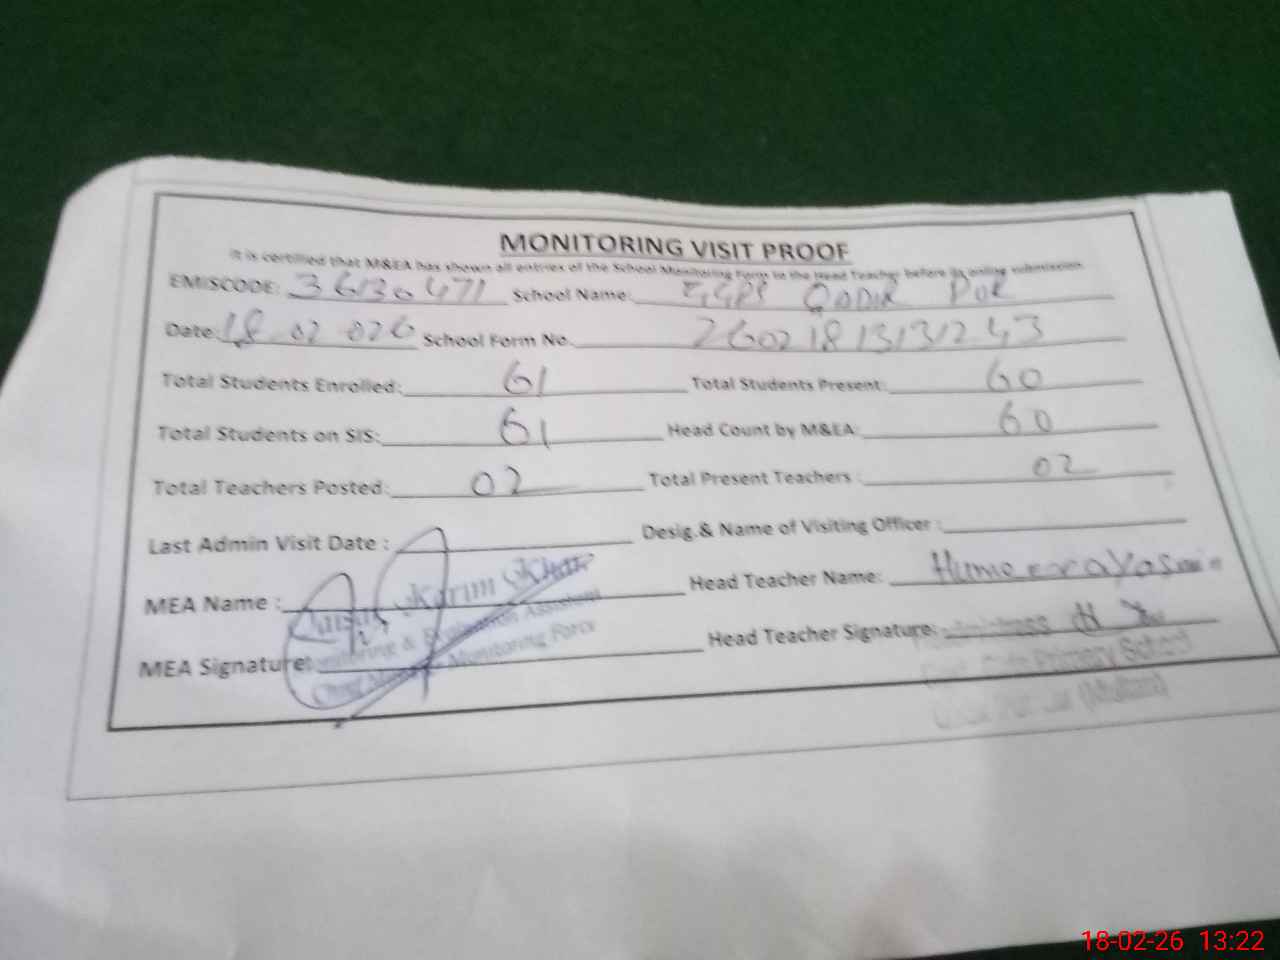 MONITORING VISIT PROOF
It is certified that M&EA has shown all entries of the School Monitoring Form to the Head Teacher before its online submission
EMISCODE: 36130471 School Name: GGPS QADIR POR
Date: 18 02 026 School Form No. 26021813131243
Total Students Enrolled: 61 Total Students Present: 60
Total Students on SIS: 61 Head Count by M&EA: 60
Total Teachers Posted: 02 Total Present Teachers : 02
Last Admin Visit Date : Desig.& Name of Visiting Officer :
MEA Name : Karim Head Teacher Name: Humeera Yasmin
MEA Signature: Monitoring & Evaluation Assistant Head Teacher Signature: Headmistress
Chief Monitoring Force
Primary School
(Multan)
18-02-26 13:22